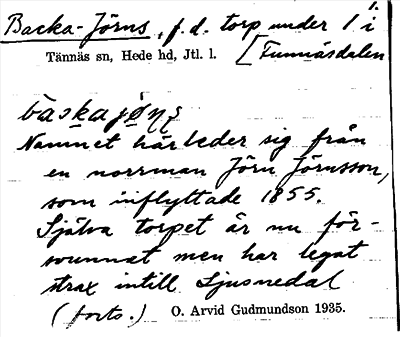 1.
Backa-Jörns, f.d. torp under 1 i
Tännäs sn, Hede hd, Jtl. l. [Funnäsdalen
bàskajö̀ɳʂ
Namnet härleder sig från
en norrman Jörn Jörnsson,
som inflyttade 1855.
Själva torpet är nu för-
svunnet men har legat
strax intill Ljusnedal
(forts.) O. Arvid Gudmundson 1935.